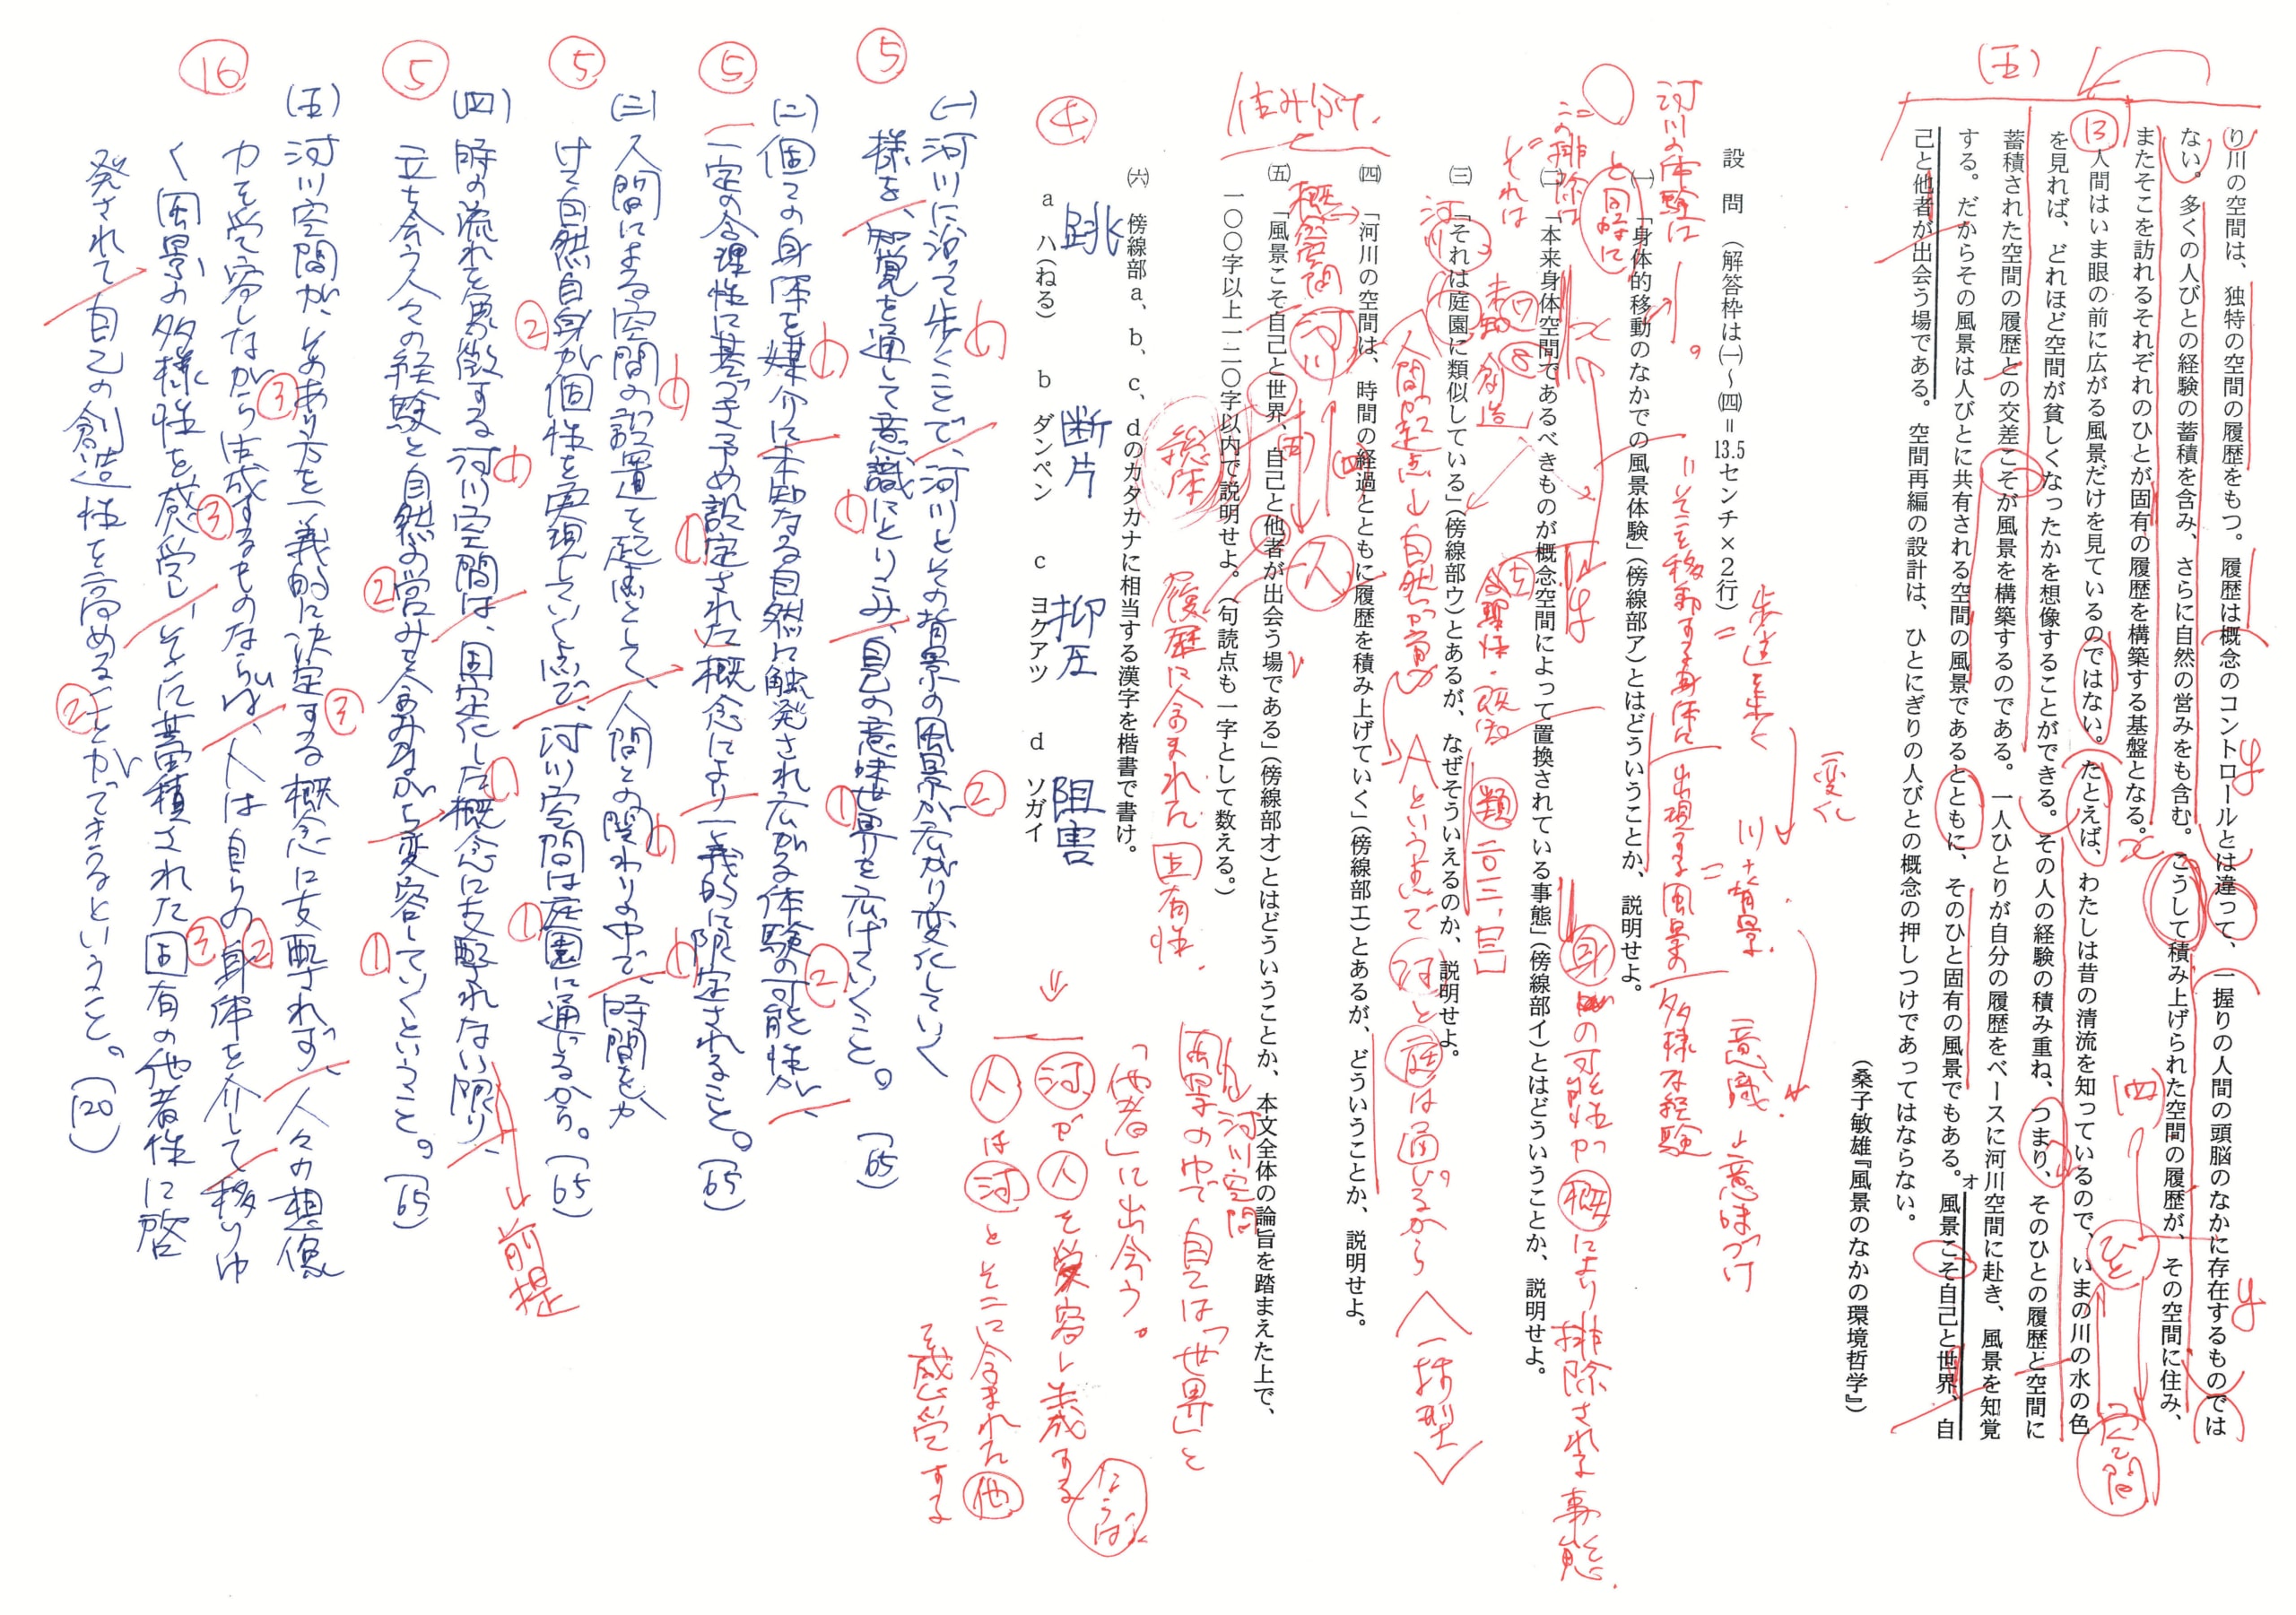 (五)
り川の空間は、独特の空間の履歴をもつ。履歴は概念のコントロールとは違って、一握りの人間の頭脳のなかに存在するものでは
ない。多くの人びとの経験の蓄積を含み、さらに自然の営みをも含む。こうして積み上げられた空間の履歴が、その空間に住み、
またそこを訪れるそれぞれのひとが固有の履歴を構築する基盤となる。
⑬人間はいま眼の前に広がる風景だけを見ているのではない。たとえば、わたしは昔の清流を知っているので、いまの川の水の色
を見れば、どれほど空間が貧しくなったかを想像することができる。その人の経験の積み重ね、つまり、そのひとの履歴と空間に
蓄積された空間の履歴との交差こそが風景を構築するのである。一人ひとりが自分の履歴をベースに河川空間に赴き、風景を知覚
する。だからその風景は人びとに共有される空間の風景であるとともに、そのひと固有の風景でもある。風景こそ自己と世界、自
オ
己と他者が出会う場である。空間再編の設計は、ひとにぎりの人びとの概念の押しつけであってはならない。
(桑子敏雄『風景のなかの環境哲学』)
[四]
ひと
空間
変化
歩道を歩く
川+背景
意識→意味づけ
設問 (解答枠は㈠〜㈣=13.5センチ×2行)
河川の体験は
と同時に
=そこを移動する身体に出現する風景の多様な経験
㈠ 「身体的移動のなかでの風景体験」(傍線部ア)とはどういうことか、説明せよ。
この排除は
それは
身の可能性が概により排除される事態
㈡ 「本来身体空間であるべきものが概念空間によって置換されている事態」(傍線部イ)とはどういうことか、説明せよ。
未知 ⑦
創造 ⑧
合理性・既知
㈢ 「それは庭園に類似している」(傍線部ウ)とあるが、なぜそういえるのか、説明せよ。
河川
人間が起点→自然が育む
Aという点で河と庭は通じるから
〈一抹型〉
㈣ 「河川の空間は、時間の経過とともに履歴を積み上げていく」(傍線部エ)とあるが、どういうことか、説明せよ。
概念空間
河川
人
㈤ 「風景こそ自己と世界、自己と他者が出会う場である」(傍線部オ)とはどういうことか、本文全体の論旨を踏まえた上で、
一〇〇字以上一二〇字以内で説明せよ。(句読点も一字として数える。)
住み分け
総体
履歴に含まれた固有性.
河川空間
風景の中で自己は「世界」と
「他者」に出会う。
河が人を受容し生成する
ならば
人は河とそこに含まれた他
を感受する
㈥ 傍線部a、b、c、dのカタカナに相当する漢字を楷書で書け。
a ハ(ねる) b ダンペン c ヨクアツ d ソガイ
④ 跳 断片 抑圧 阻害
⑤
(一) 河川に沿って歩くことで、河川とその背景の風景が広がり変化していく
様を、知覚を通して意識にとりこみ、自己の意味世界を広げていくこと。(65)
⑤
(二) 個々の身体を媒介に未知なる自然に触発され広がる体験の可能性が、
一定の合理性に基づき予め設定された概念により一義的に限定されること。(65)
⑤
(三) 人間による空間の設置を起点として、人間との関わりの中で、時間をか
けて自然自身が個性を実現していく点で、河川空間は庭園に通じるから。(65)
⑤
(四) 時の流れを象徴する河川空間は、固定化した概念に支配されない限り、
立ち会う人々の経験と自然の営みを含みながら変容していくということ。(65)
前提
⑯
(五) 河川空間が、そのあり方を一義的に決定する概念に支配されず、人々の想像
力を受て容しながら生成するものならば、人は自らの身体を介して移りゆ
く風景の多様性を感受し、そこに蓄積された固有の他者性に啓
発されて自己の創造性を高めることができるということ。(120)